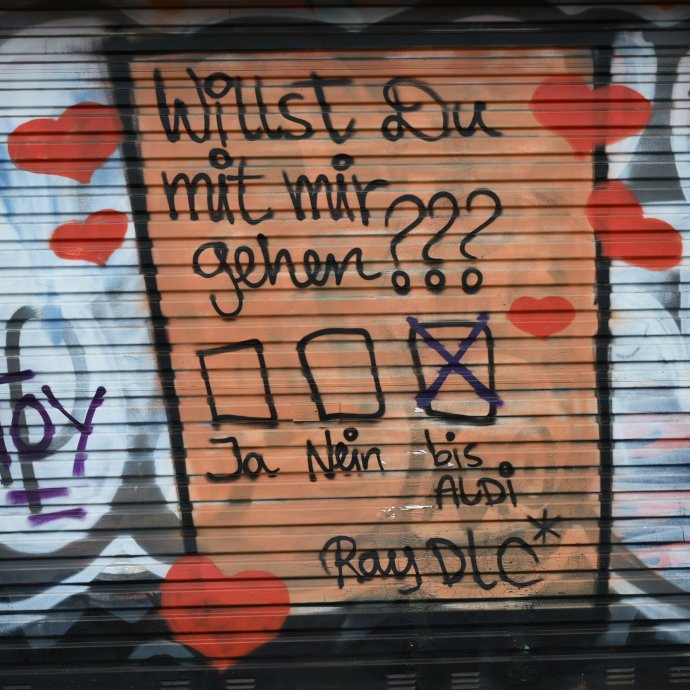 Willst Du
mit mir
gehen???
Ja Nein bis
ALDi
Ray DLC*
TOY